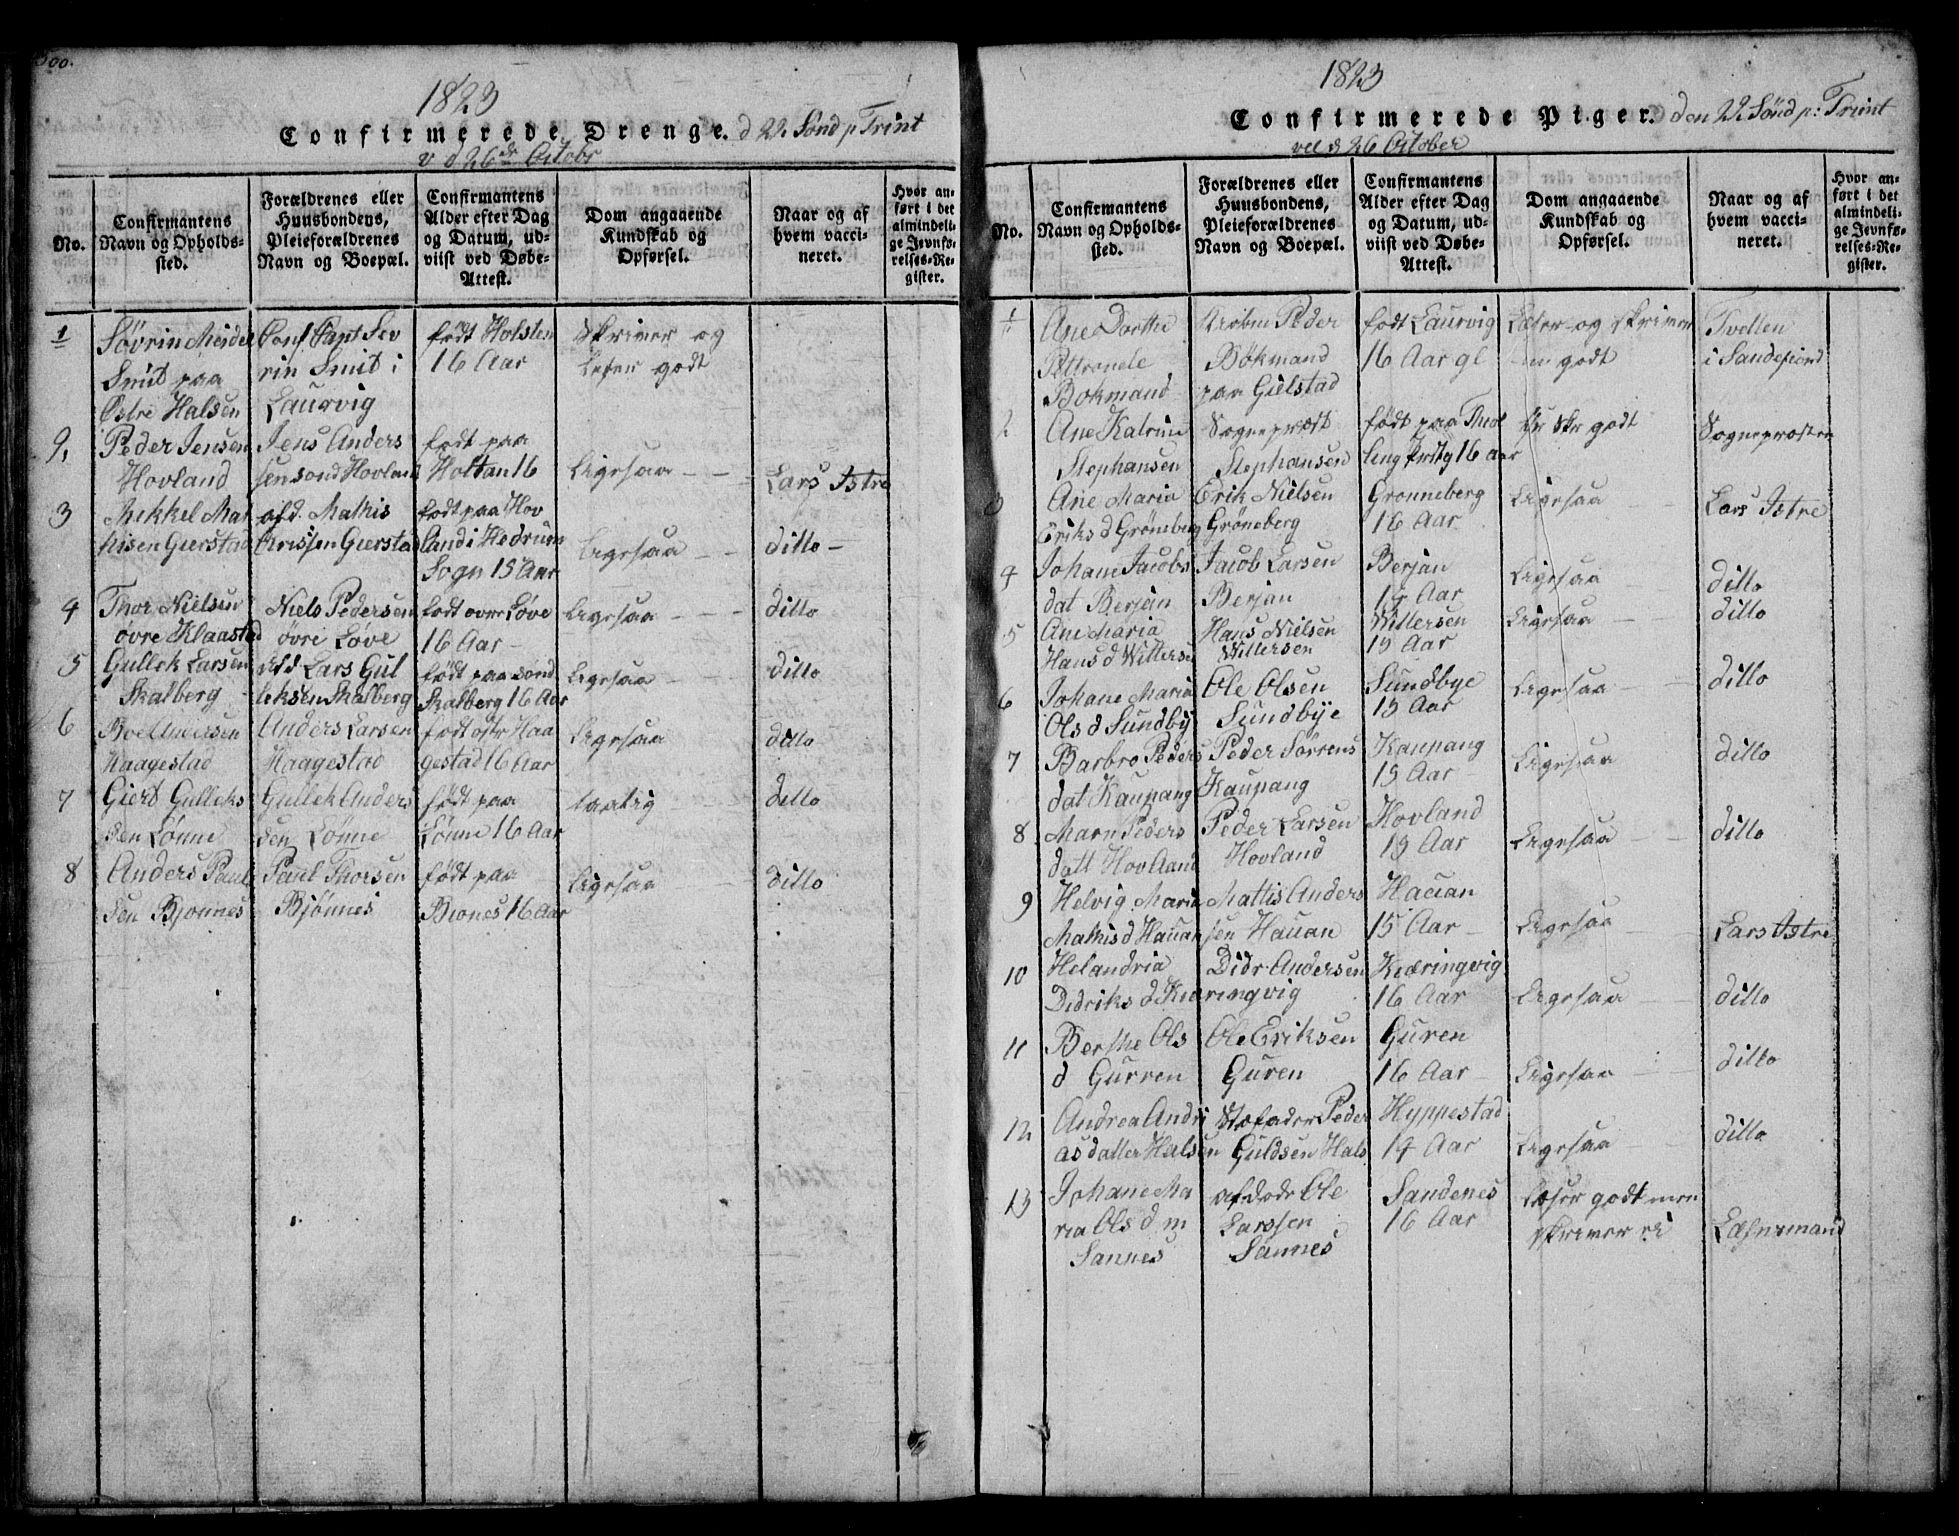 1823
Confirmerede Drenge. d 22 Sønd p Trint
v d 26de Octobr
No.
Confirmantens Navn og Opholdssted.
Forældrenes eller Huusbondens, Pleieforældrenes Navn og Boepæl.
Confirmantens Alder efter Dag og Datum, udviist ved Døbe-Attest.
Dom angaaende Kundskab og Opførsel.
Naar og af hvem vaccineret.
Hvor anført i det almindelige Jevnførelses-Register.
1 Søvrin Meidel Smit paa Østre Halsen
Sevrin Smit i Laurvig
født Holsten 16 Aar
Skriver og Leser godt
2, Peder Jensen Hovland
Jens Anders sen Hovland
født paa Holtan 16
Ligesaa
Lars Istre
3 Mekkel Mathisen Gierstad
afd. Mathis Gierstad
født paa Hovland i Hedrum Sogn 15 Aar
Ligesaa
ditto
4 Thor Nielsen øvre Klaastad
Niels Pedersen øvre Løve
født øvre Løve 16 Aar
Ligesaa
ditto
5 Gullek Larsen Skalberg
afd Lars Gul leksen Skalberg
født paa sønd Skalberg 16 Aar
Ligesaa
ditto
6 Boe Andersen Haagestad
Anders Larsen Haagestad
født østr Haa gestad 16 Aar
Ligesaa
ditto
7 Giert Gulleks sen Lønne
Gullek Anders sen Lønne
født paa Lønne 16 Aar
taalig
ditto
8 Anders Paul sen Bjønnes
Paul Thorsen Bjønnes
født paa Biønes 16 Aar
Ligesaa
ditto
1823
Confirmerede Piger. den 22 Sønd p: Trint
vel d 26 October
No.
Confirmantens Navn og Opholdssted.
Forældrenes eller Huusbondens, Pleieforældrenes Navn og Boepæl.
Confirmantens Alder efter Dag og Datum, udviist ved Døbe-Attest.
Dom angaaende Kundskab og Opførsel.
Naar og af hvem vaccineret.
Hvor anført i det almindelige Jevnførelses-Register.
1 Ane Dorthe Pettronele Bokmand
Peder Bökmand paa Gielstad
født Laurvig 16 Aar gl
Læser og skriver godt
Tvellen i Sandefiord
2 Ane Katrine Stephansen
Sognepræst Stephansen
født paa 16 aar
godt
Sognepræsten
3 Ane Maria Eriks d Grønneberg
Erik Nielsen Gröneberg
Gronneberg 16 Aar
Ligesaa
Lars Istre
4 Johane Jacobs dat Berján
Jacob Larsen Berján
Berján 14 Aar
Ligesaa
ditto
5 Ane Maria Hans d Willersen
Hans Nielsen Willersen
Willersen 15 Aar
Ligesaa
ditto
6 Johane Maria Ols d Sundby
Ole Olsen Sundbye
Sundbye 15 Aar
Ligesaa
ditto
7 Barbro Peders dat Kaupang
Peder Sørrens Kaupang
Kaupang 15 Aar
Ligesaa
ditto
8 Marn Peders datt Hovland
Peder Larsen Hovland
Hovland 15 Aar
Ligesaa
ditto
9 Helvig Maria Mathis d Hauan
Mattis Anders sen Hauan
Hauan 15 Aar
Ligesaa
Lars Istre
10 Helandria Didriks d Kiæringvig
Didr Andersen
Kiæringvig 16 Aar
Ligesaa
ditto
11 Berthe Ols d Gurren
Ole Eriksen Guren
Guren 16 Aar
Ligesaa
ditto
12 Andrea Andri as datter Halsen
Stefader Peder Guldsen Hals
Hyppestad 14 Aar
Ligesaa
ditto
13 Johane Ma ria Ols d m Sannes
afdøde Ole Larssen Sannes
Sandenes 16 Aar
Læser godt men skriver ei
Læsnemand